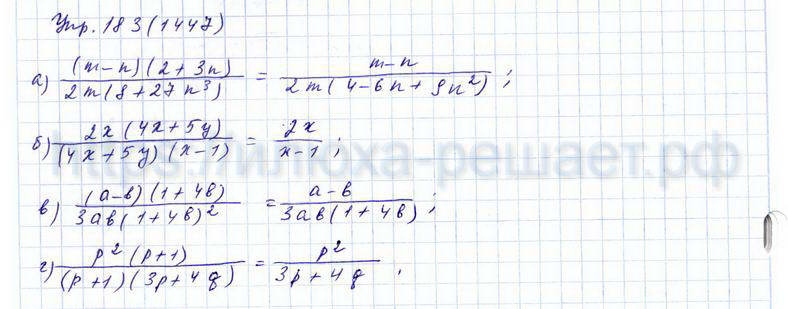 Упр. 183 (1447)
а) (m-n)(2+3n) / 2m(8+27n³) = m-n / 2m(4-6n+9n²);
б) 2x(4x+5y) / (4x+5y)(x-1) = 2x / x-1;
https://илюха-решает.рф
в) (a-b)(1+4b) / 3ab(1+4b)² = a-b / 3ab(1+4b);
г) p²(p+1) / (p+1)(3p+4q) = p² / 3p+4q,